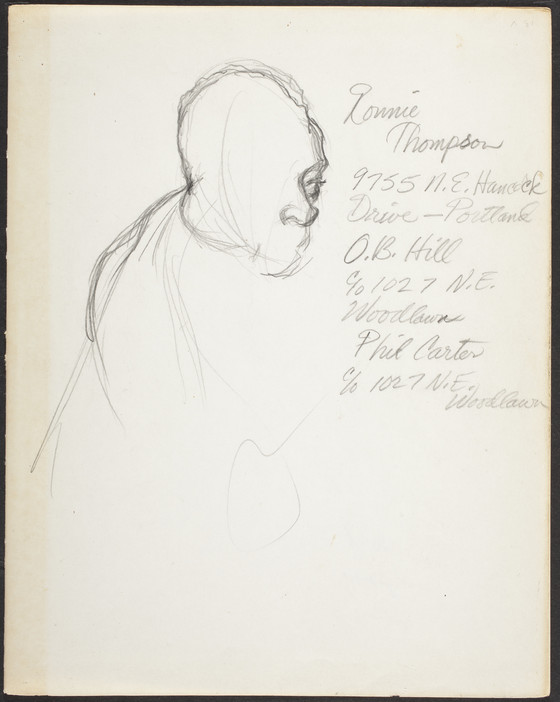 Ronnie
Thompson
9755 N.E. Hancock
Drive - Portland
O.B. Hill
c/o 1027 N.E.
Woodlawn
Phil Carter
c/o 1027 N.E.
Woodlawn